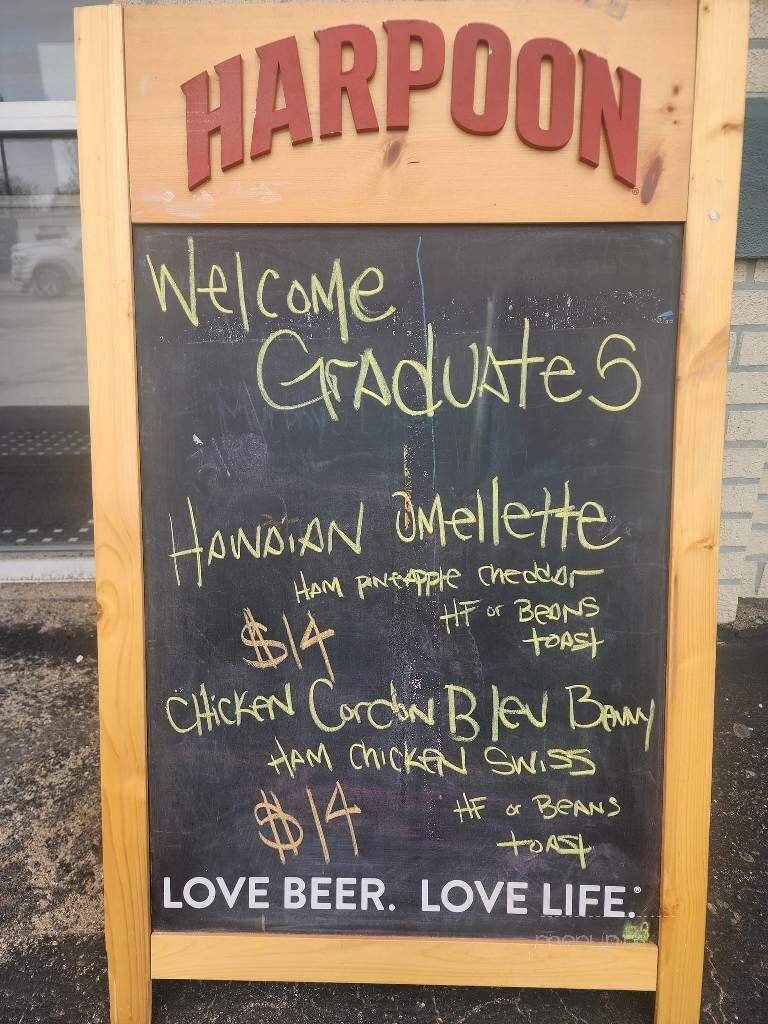 HARPOON
Welcome
Graduates
Hawaian Omellette
Ham pineapple cheddar
HF or Beans
toast
$14
Chicken Cordon Bleu Benny
Ham chicken Swiss
HF or Beans
toast
$14
LOVE BEER. LOVE LIFE.®